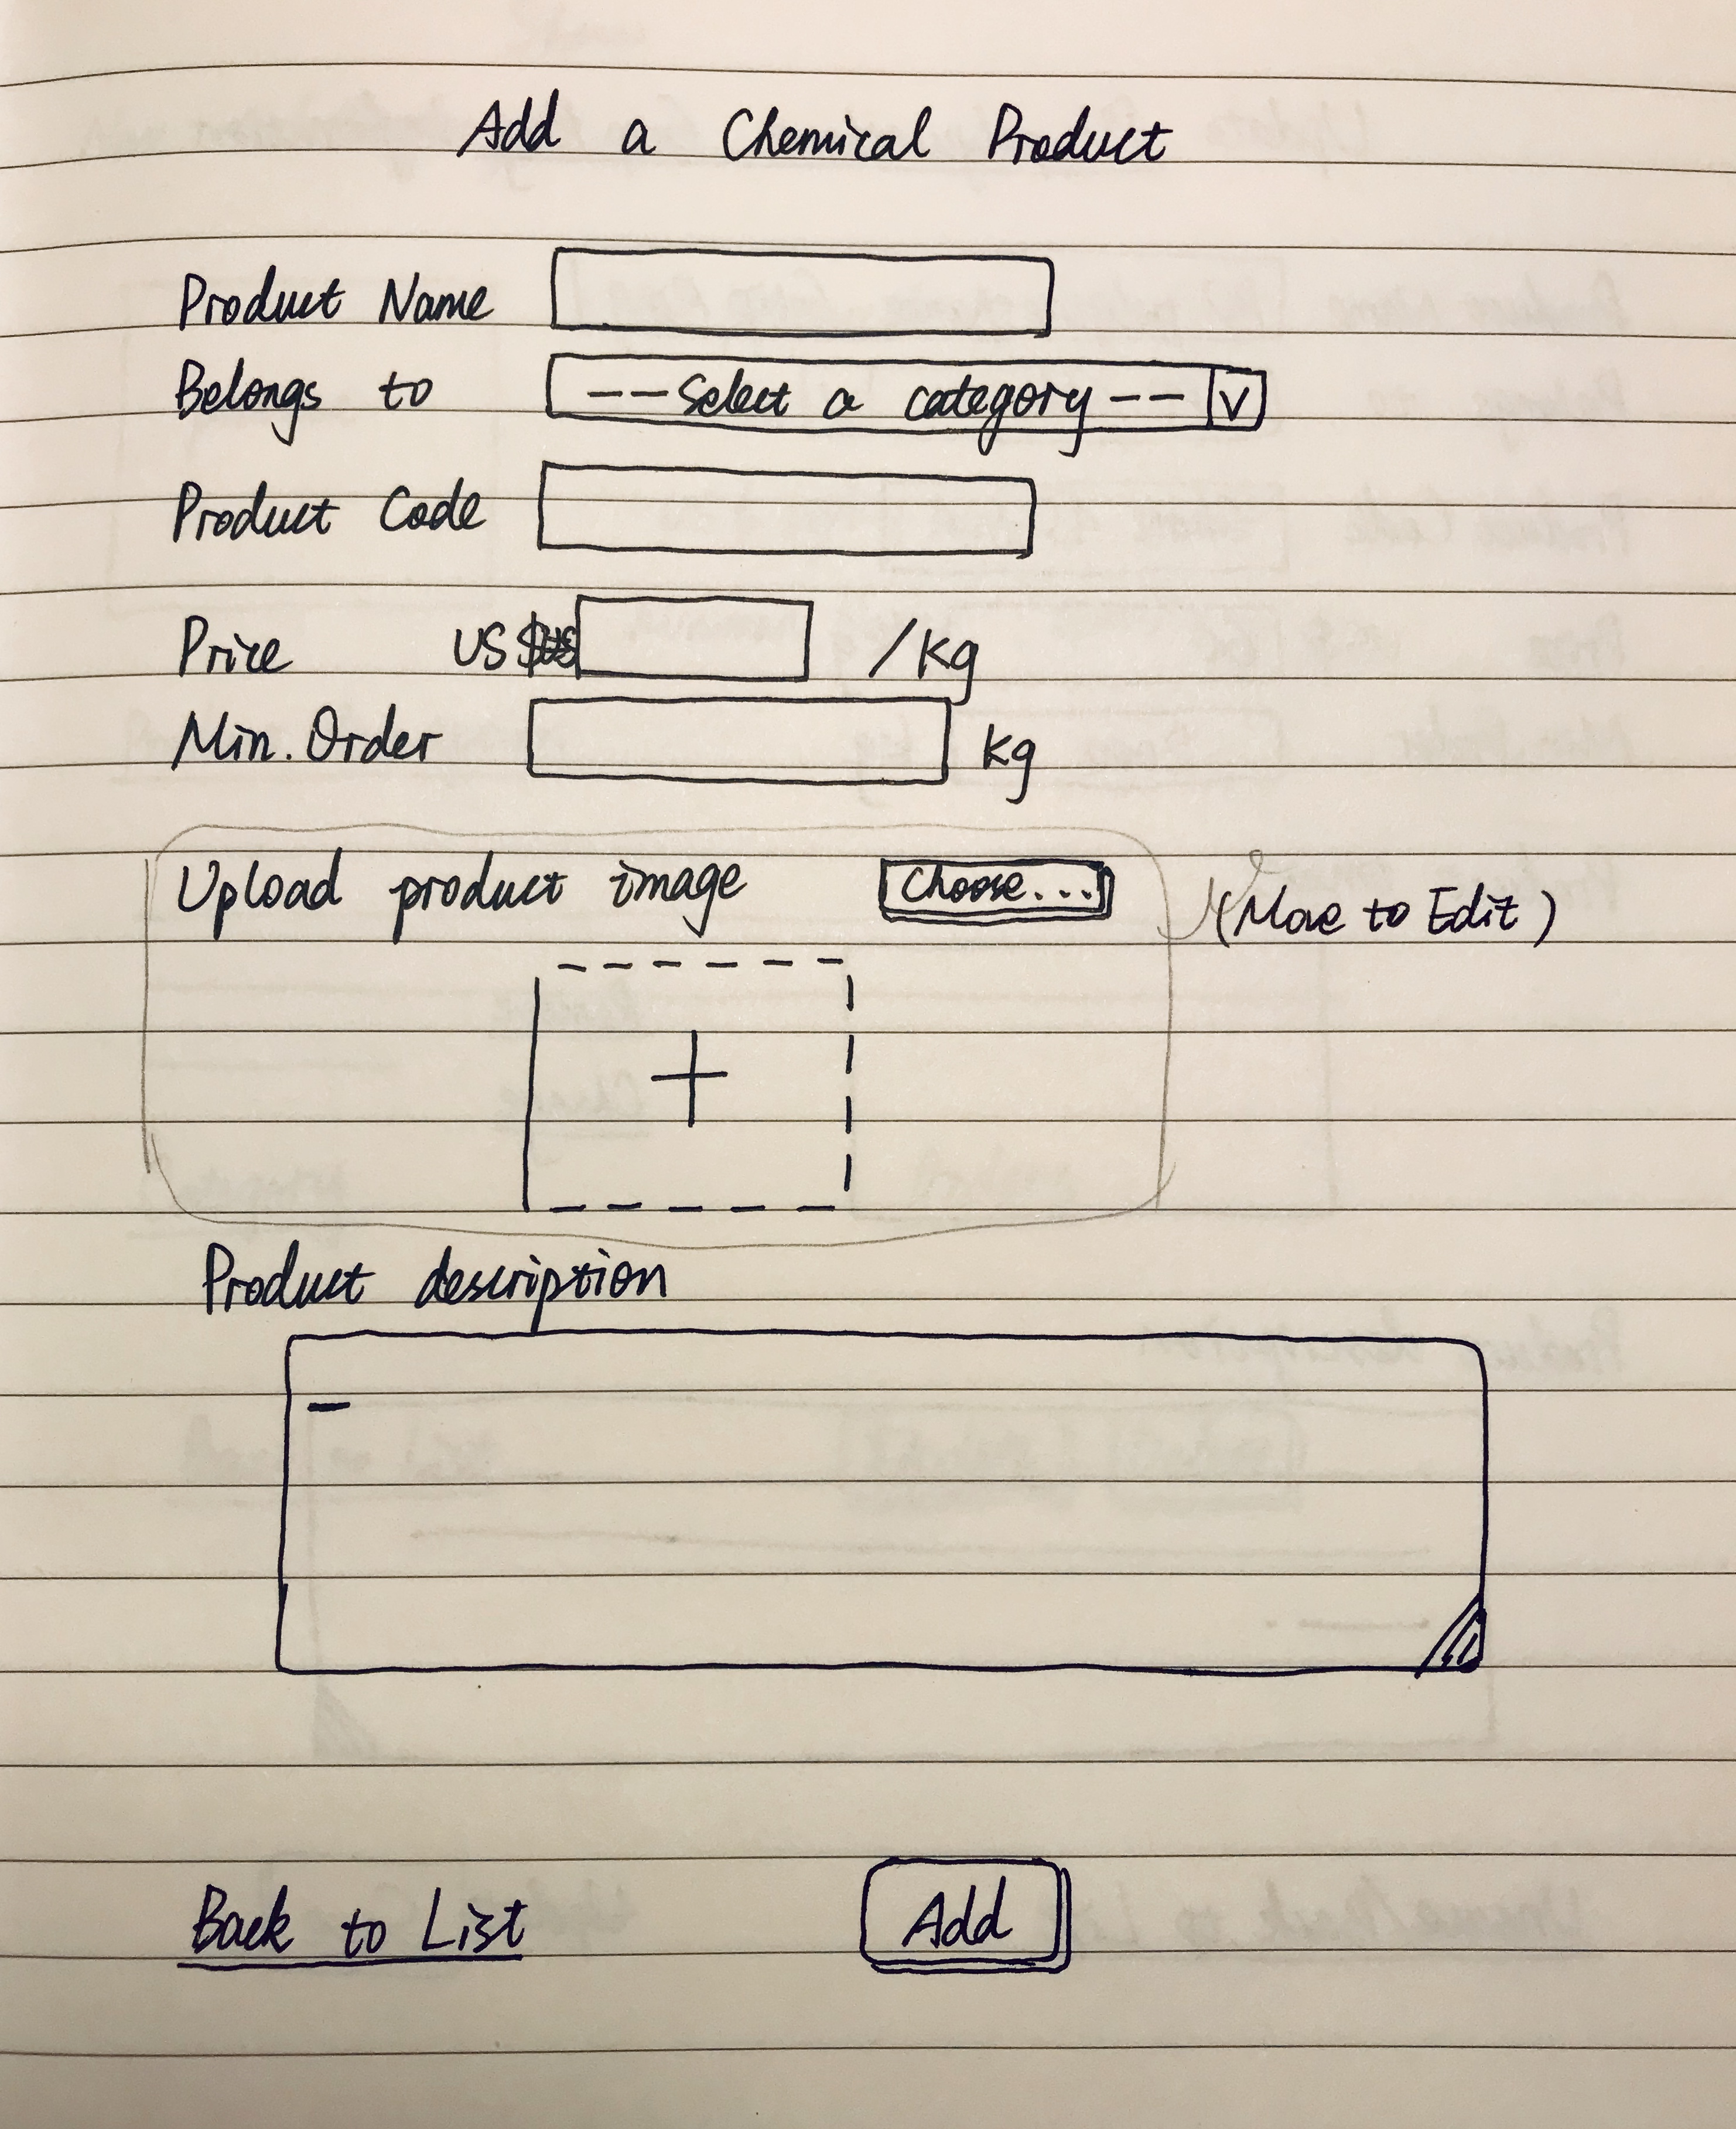 Add a Chemical Product
Product Name
Belongs to --Select a category-- V
Product Code
Price US $ /Kg
Min. Order Kg
Upload product image Choose... (Move to Edit)
+
Product description
Back to List Add